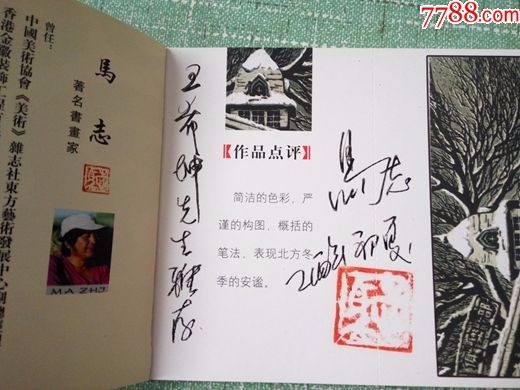 7788.com
曾任：
馬志
著名書畫家
中國美術協會《美術》雜志社東方藝術發展中心副總
MA ZHI
王希坤先生雅存
【作品点评】
简洁的色彩、严
谨的构图、概括的
笔法、表现北方冬
季的安谧。
馬志
初夏